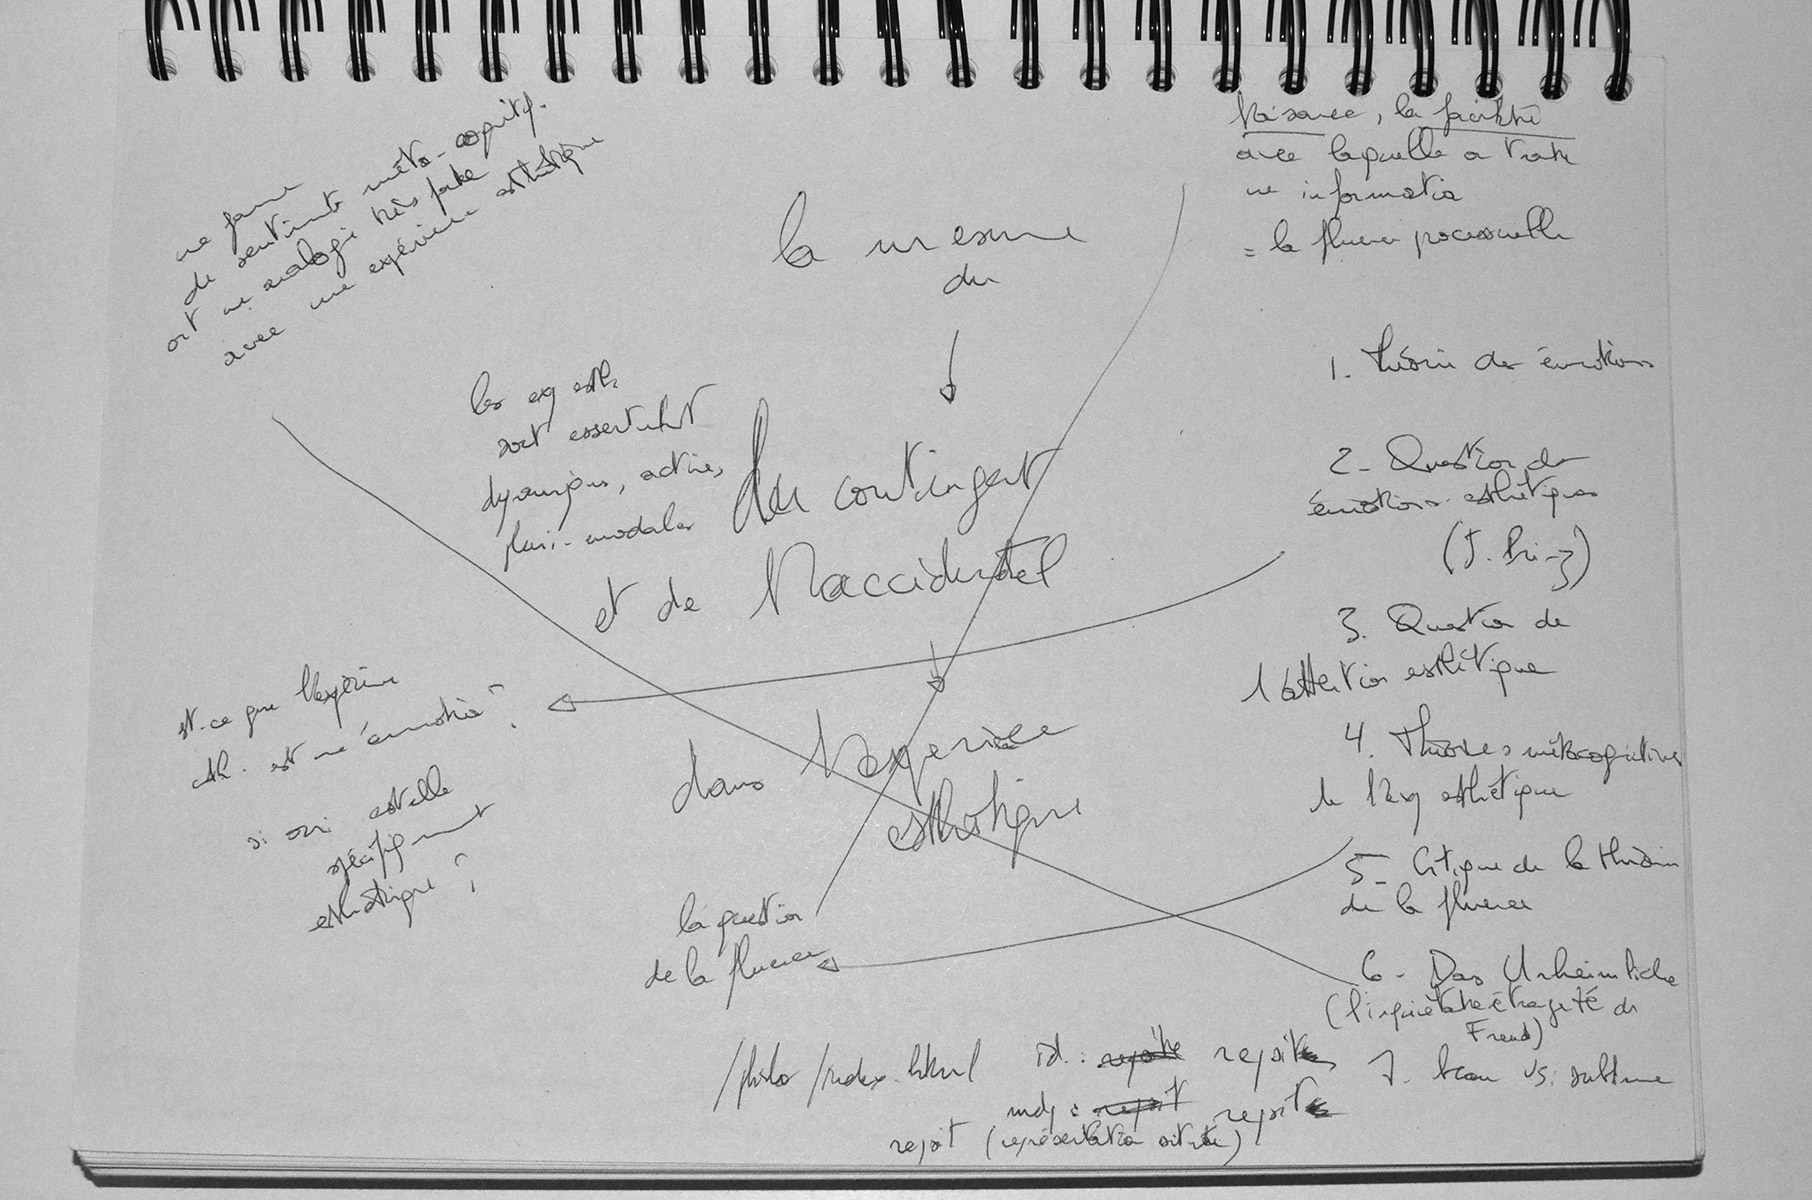 de sentiments méta-cognitifs
ont une analogie très forte
avec une expérience esthétique
l'aisance, la facilité
avec laquelle on traite
une information
= la fluence processuelle
la mesure
du
les exp esth.
sont essentiellt
dynamiques, actives,
pluri-modales
du contingent
et de l'accidentel
dans l'expérience
esthétique
est-ce que l'expérience
esth. est une émotion ?
si oui est elle
spécifiqment
esthétique ?
la question
de la fluence
1. théorie des émotions
2 - Question des
émotions esthétiques
(J. Prinz)
3. Question de
l'attention esthétique
4. Théories métacognitives
de l'exp esthétique
5 - Critique de la théorie
de la fluence
6 - Das Unheimliche
(l'inquiétante étrangeté de
Freud)
7. beau vs. sublime
/philo/index.html id : repsit
mdp : repsit
repsit (représentation située)